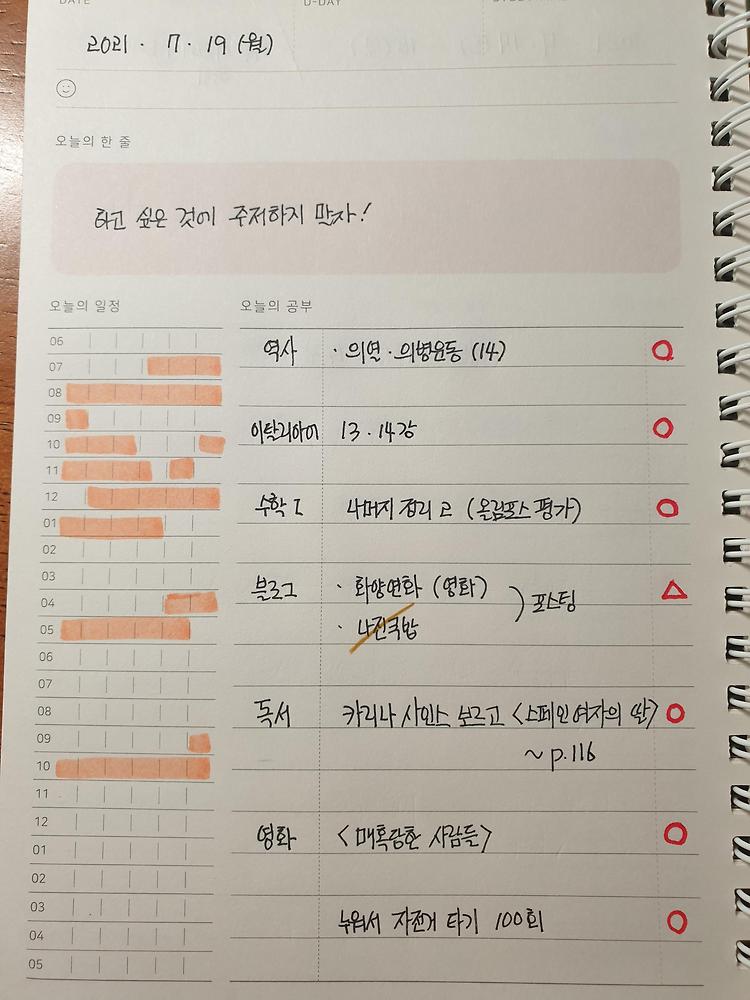 DATE D-DAY
2021. 7. 19 (월)
오늘의 한 줄
타고 싶은 것에 주저하지 말자!
오늘의 일정 오늘의 공부
06
07
08
09
10
11
12
01
02
03
04
05
06
07
08
09
10
11
12
01
02
03
04
05
역사 · 의열·의병운동 (14)
이탈리아어 13·14강
수학 I 나머지 정리 2 (올림포스 평가)
블로그 · 화양연화 (영화) ) 포스팅
· 나진국밥
독서 카리나 사인스 보르고 <스페인 여자의 딸>
~ p.116
영화 <매혹당한 사람들>
누워서 자전거 타기 100회